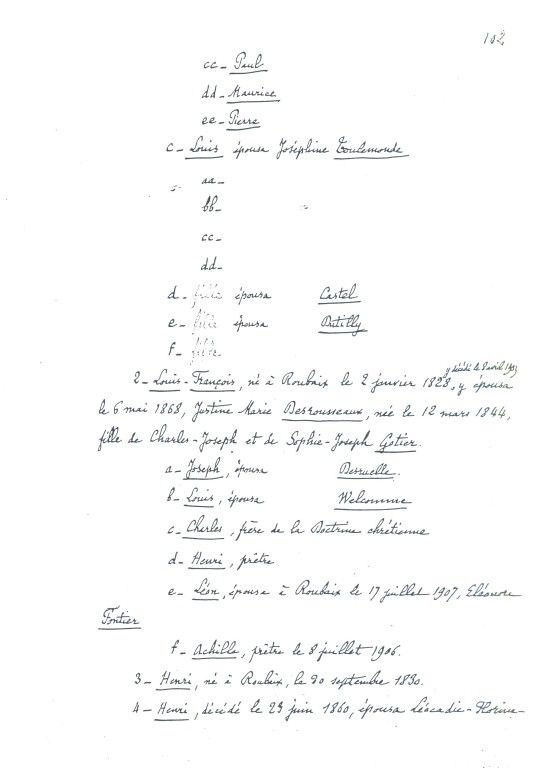 102
cc - Paul
dd - Maurice
ee - Pierre
c - Louis épousa Joséphine Toulemonde
aa -
bb -
cc -
dd -
d - fille épousa Castel
e - fille épousa Dutilly
f - fils
y décédé le 8 avril
2 - Louis-François, né à Roubaix le 2 janvier 1828, y épousa
le 6 mai 1868, Justine Marie Desrousseaux, née le 12 mars 1844,
fille de Charles-Joseph et de Sophie-Joseph Gatier.
a - Joseph, épousa Desruelle.
b - Louis, épousa Welcomme
c - Charles, frère de la Doctrine chrétienne
d - Henri, prêtre
e - Léon, épousa à Roubaix le 17 juillet 1907, Eléonore
Fontier
f - Achille, prêtre le 8 juillet 1906.
3 - Henri, né à Roubaix, le 20 septembre 1830.
4 - Henri, décédé le 29 juin 1860, épousa Léocadie-Florine-